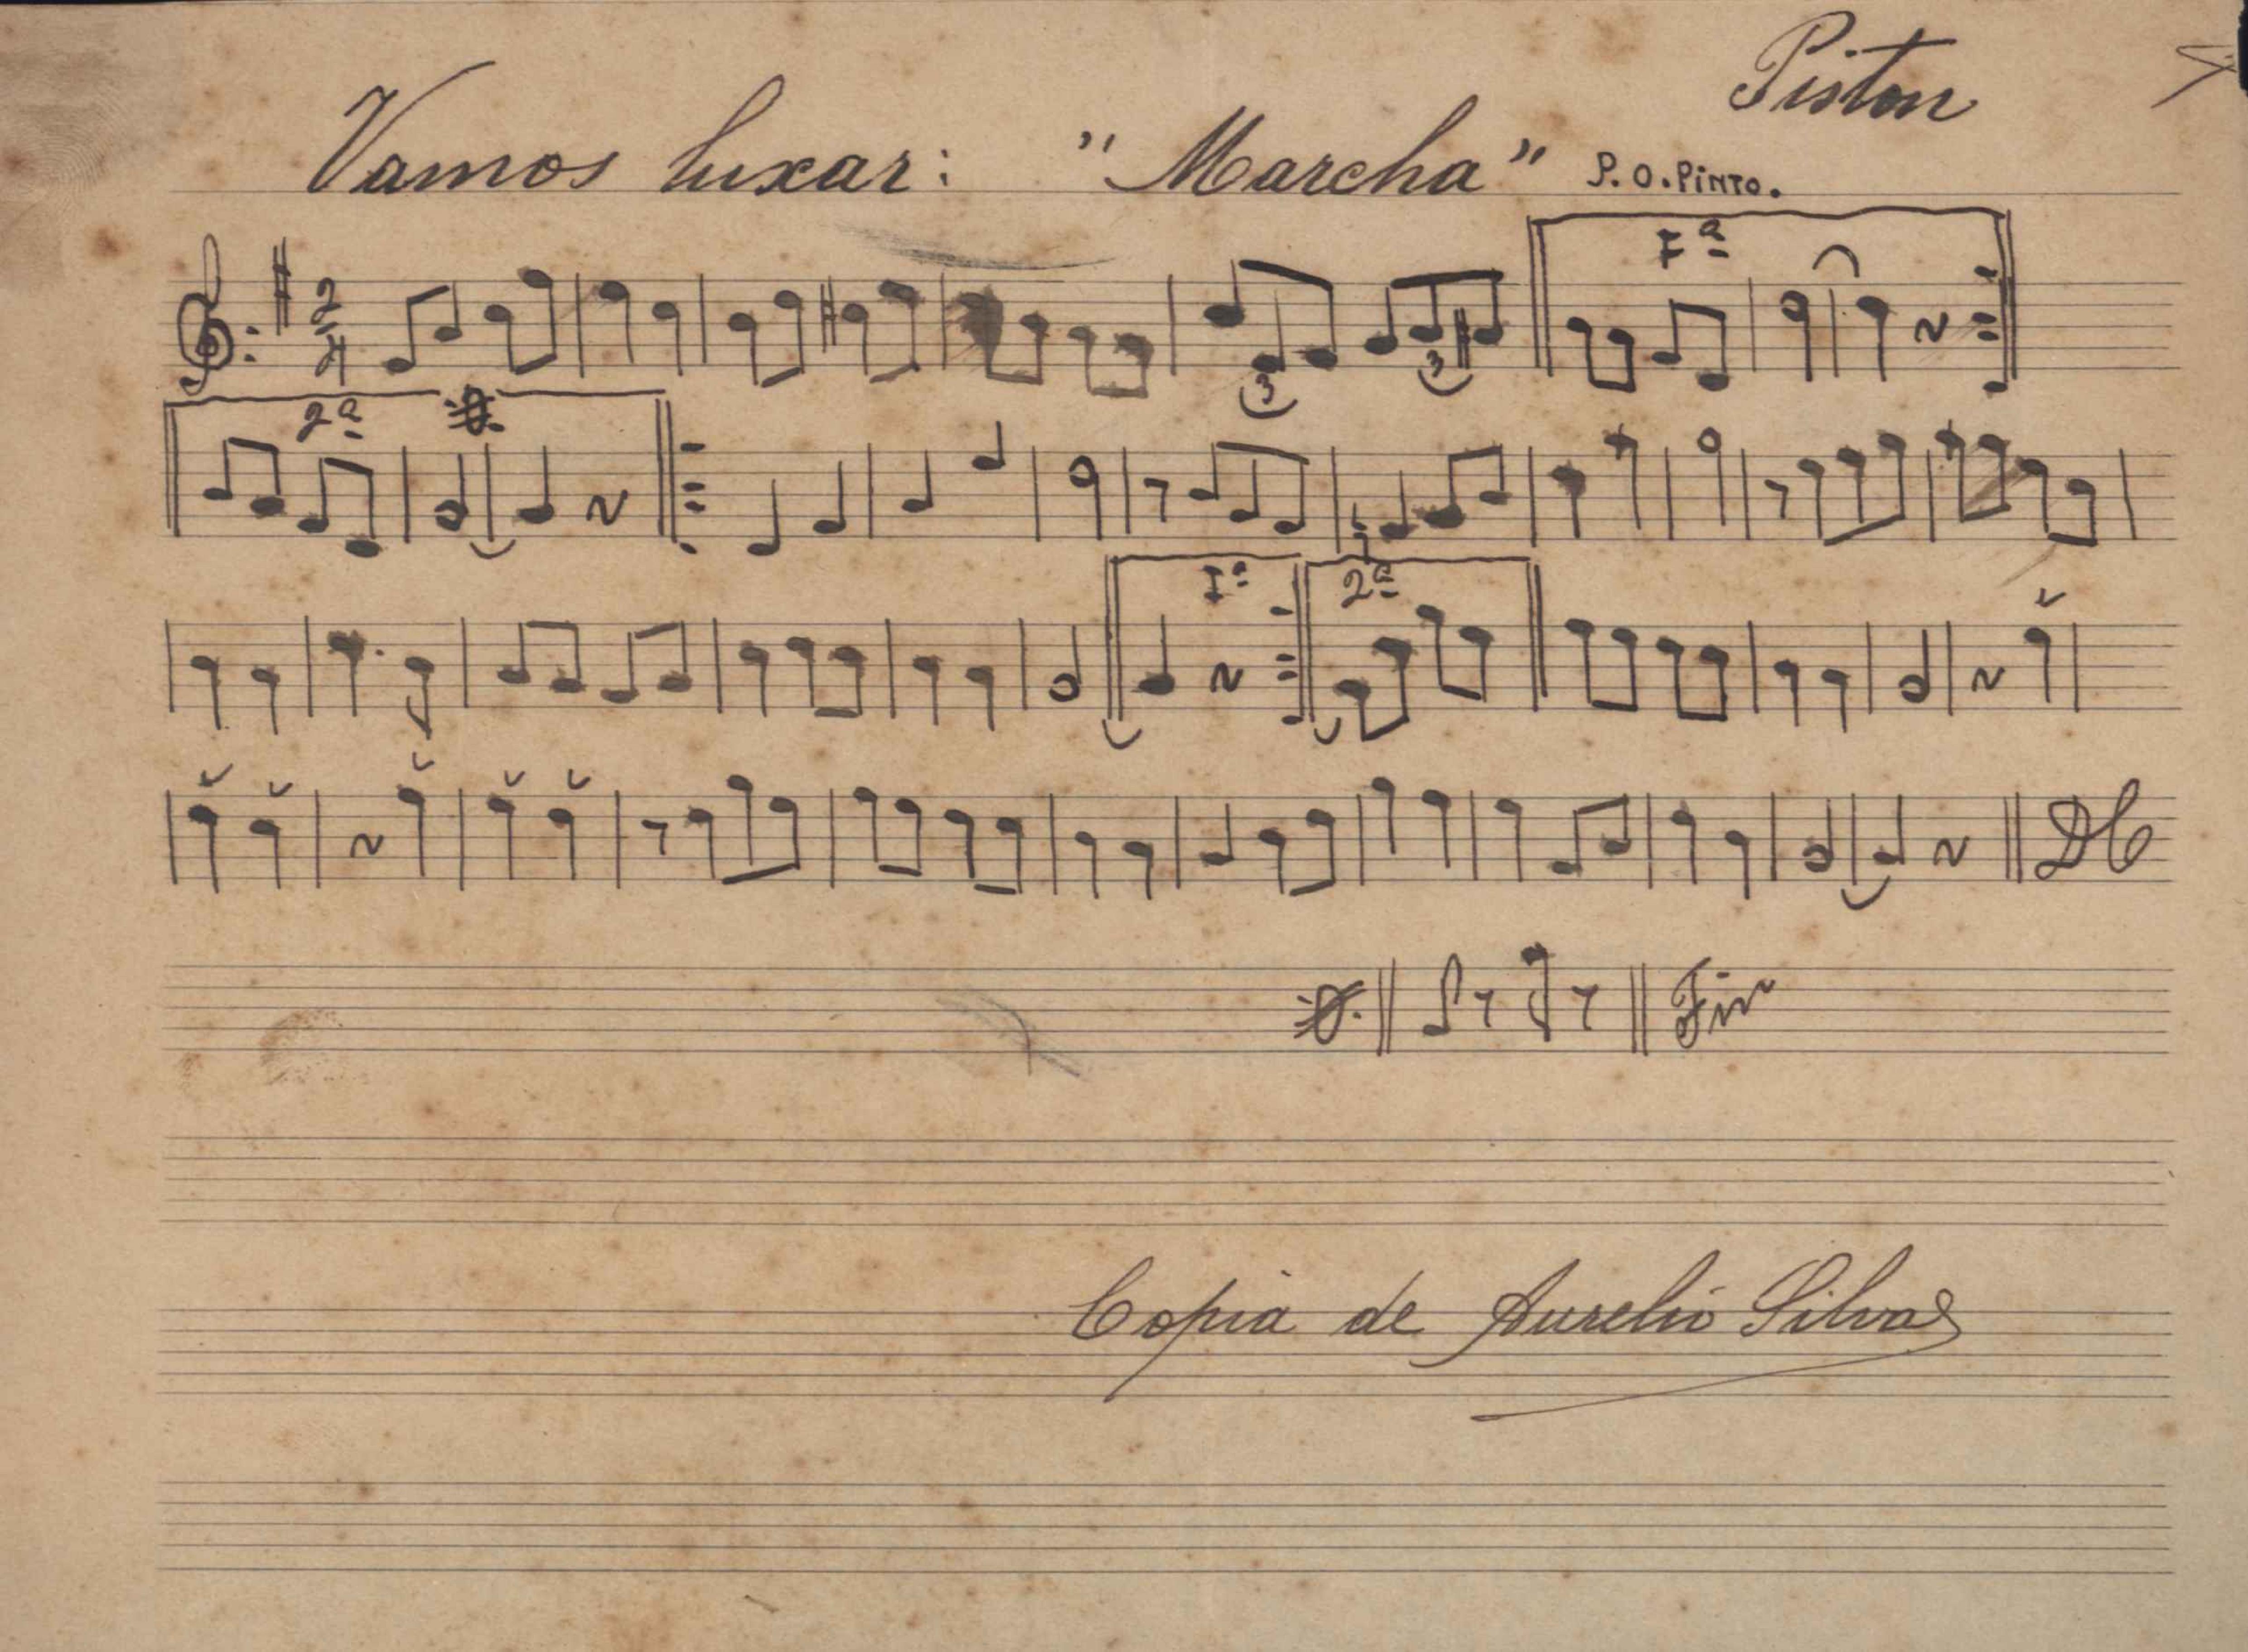 Piston
Vamos luxar: "Marcha" P.O.Pinto.
2
4
3 3 Iª
2ª
Iª 2ª
DC
Fin
Copia de Aurelio Silva